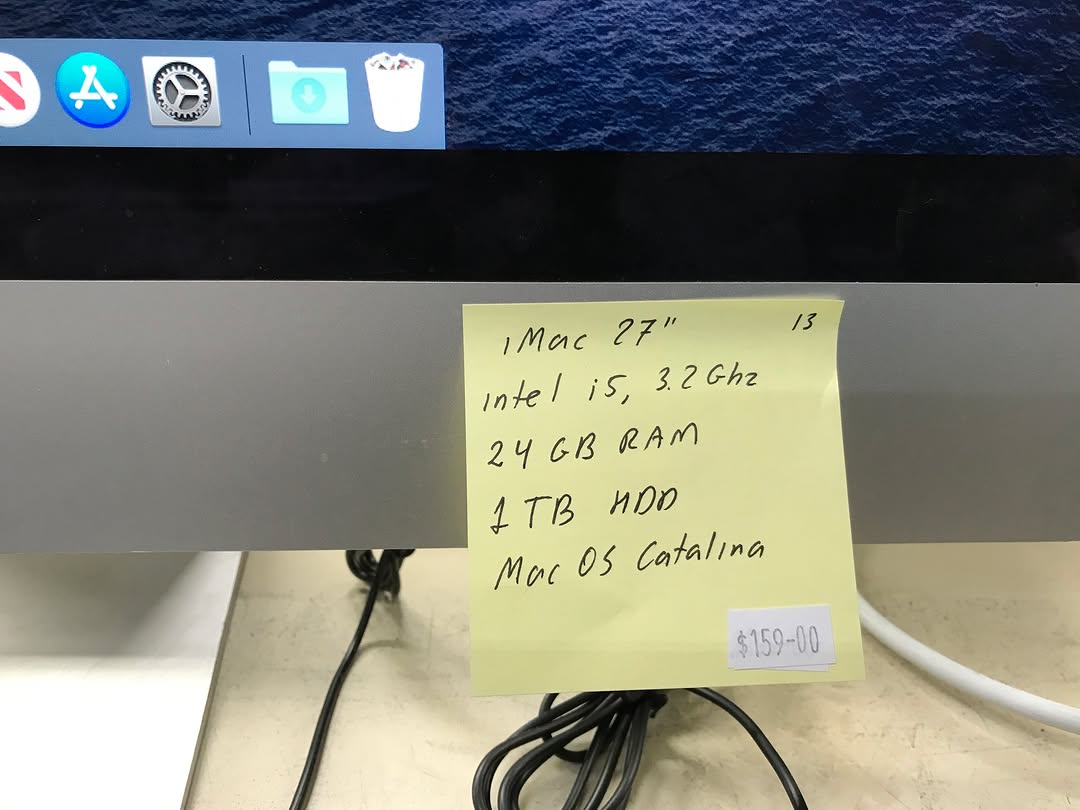 iMac 27" 13
intel i5, 3.2 Ghz
24 GB RAM
1 TB HDD
Mac OS Catalina
$159-00